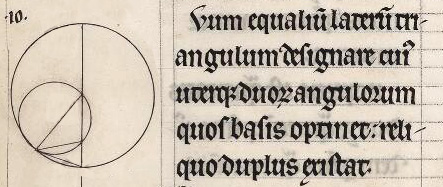 .10.
Vum equaliũ laterũ tri-
angulum designare cui᷒
uterqꝫ duoꝝ angulorum
quos basis optinet: reli-
quo duplus existat.